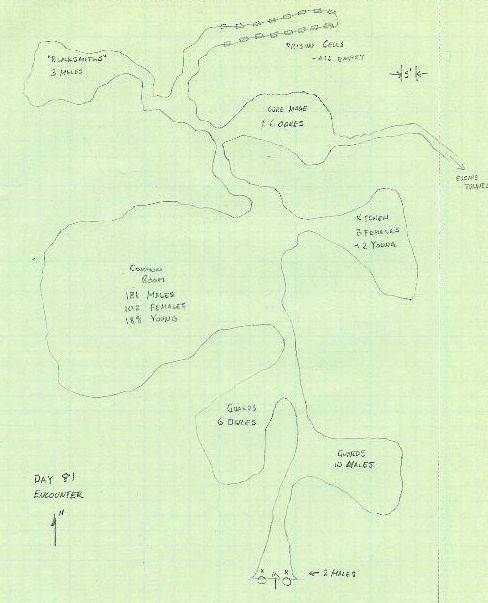 "BLACKSMITHS"
3 MALES
PRISON CELLS
- ALL EMPTY
5'
CORE MAGE
1 6 OGRES
ESCAPE
TUNNEL
KITCHEN
3 FEMALES
2 YOUNG
COMMON
ROOM
181 MALES
102 FEMALES
188 YOUNG
GUARDS
6 OGRES
GUARDS
10 MALES
DAY 81
ENCOUNTER
N
← 2 MALES